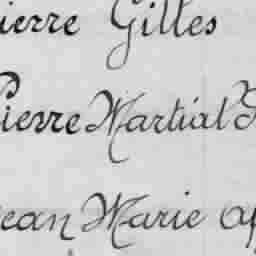 ierre Gilles
Pierre Martial
Jean Marie